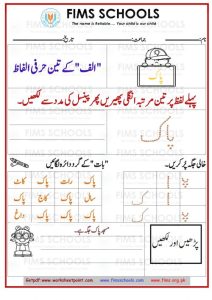 FIMS SCHOOLS
The name is Reliable ... Your child is our child
نام: جماعت: تاریخ:
"الف" کے تین حرفی الفاظ
پاک
پہلے لفظ پر تین مرتبہ انگلی پھیریں پھر پینسل کی مدد سے لکھیں۔
پاک
خالی جگہ پر کریں۔
"پاک" کے گرد دائرہ لگائیں
پاک رات پاک کاٹ
پاک کاج پاک سال
داغ پاک باغ پاک
پڑھیں اور لکھیں
مسجد پاک جگہ ہے۔
Getpdf www.worksheetpoint.com www.fimsschools.com www.fims.org.pk